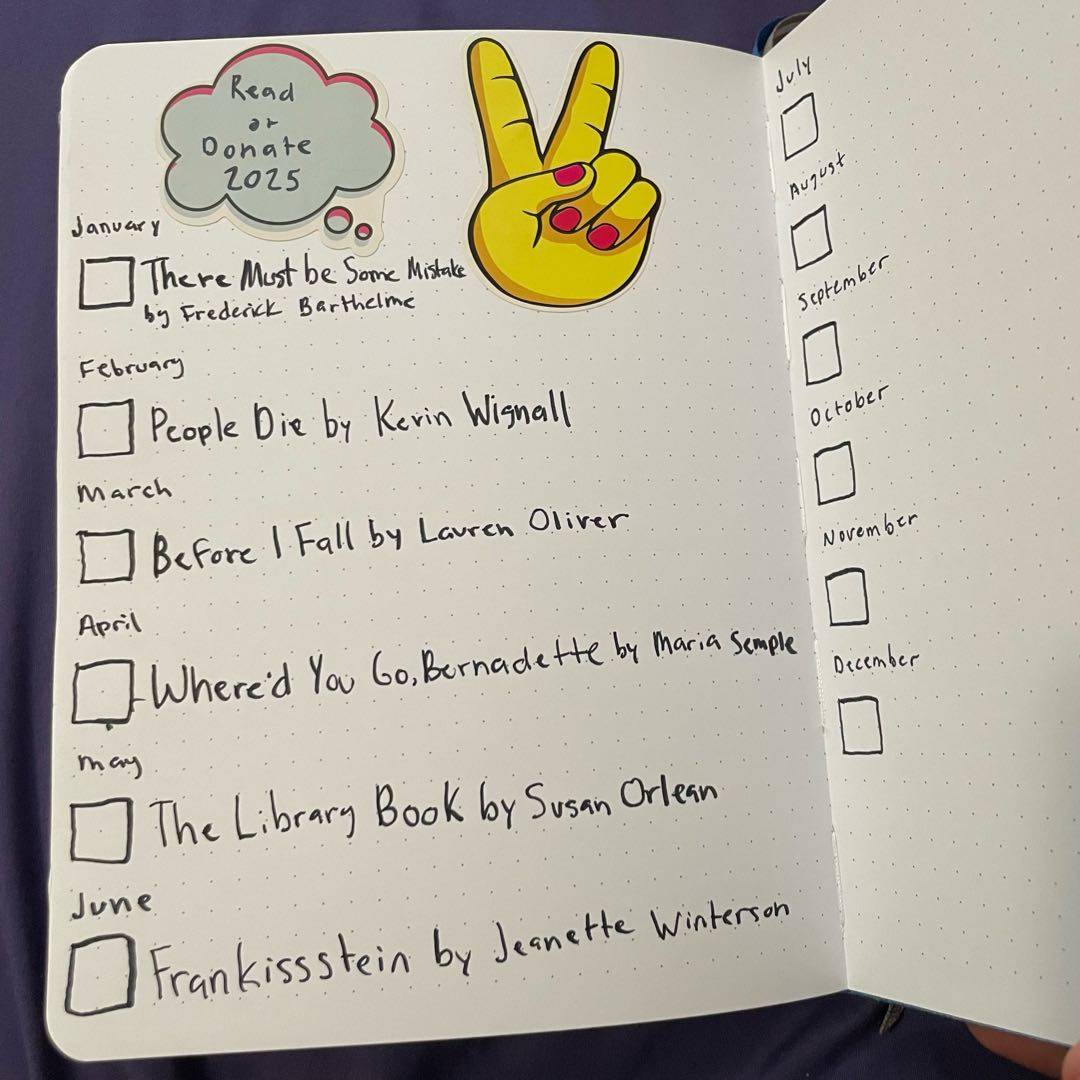 Read
or
Donate
2025
January
There Must be Some Mistake
by Frederick Barthelme
February
People Die by Kevin Wignall
March
Before I Fall by Lauren Oliver
April
Where'd You Go, Bernadette by Maria Semple
May
The Library Book by Susan Orlean
June
Frankissstein by Jeanette Winterson
July
August
September
October
November
December